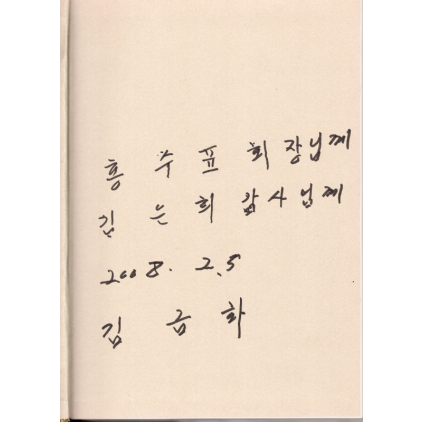 홍 수표 회장님께
김 은희 감사님께
2008. 2.5
김 금화